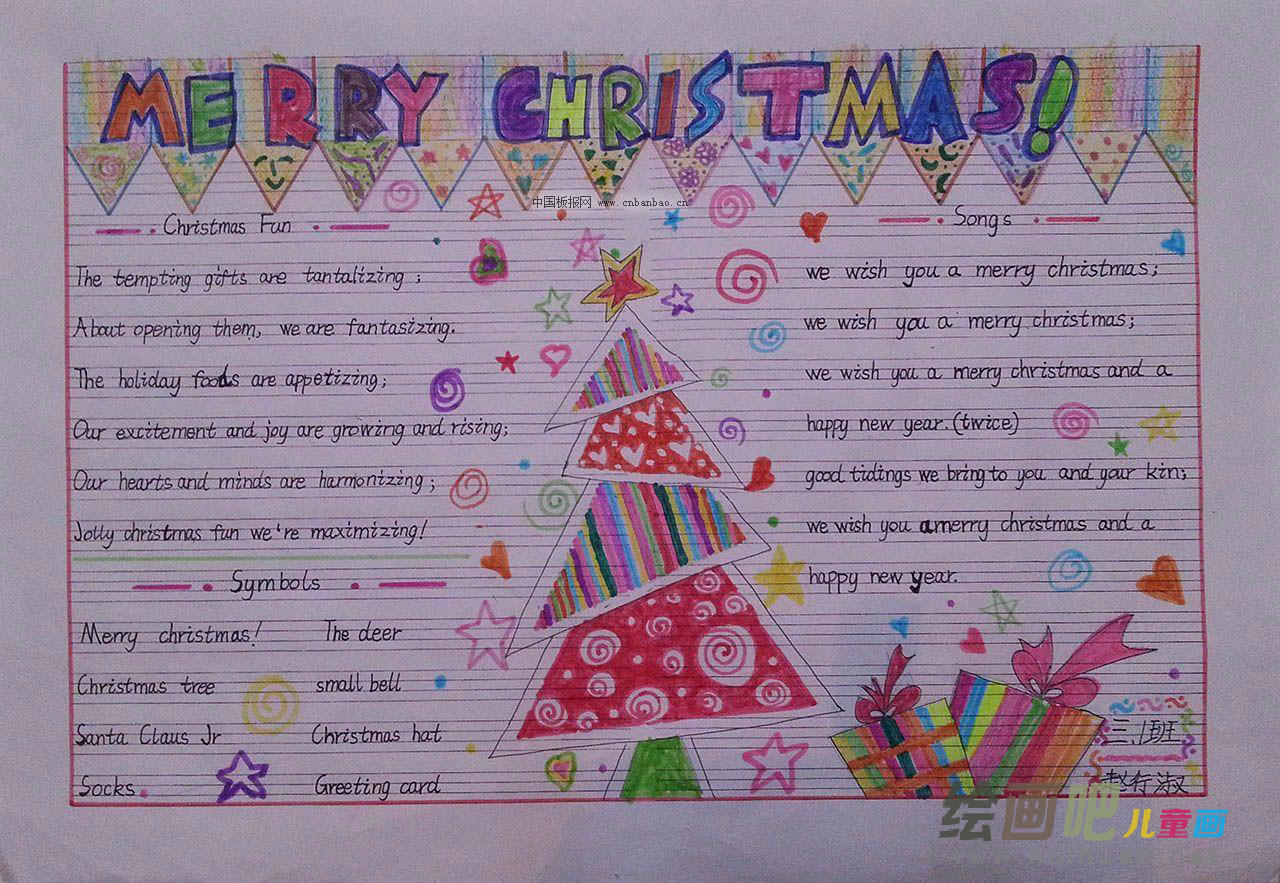 MERRY CHRISTMAS!
中国板报网 www.cnbanbao.cn
Christmas Fun
The tempting gifts are tantalizing ;
About opening them, we are fantasizing.
The holiday foods are appetizing;
Our excitement and joy are growing and rising;
Our hearts and minds are harmonizing ;
Jolly christmas fun we're maximizing!
Symbols
Merry christmas! The deer
Christmas tree small bell
Santa Claus Jr Christmas hat
Socks Greeting card
Songs
we wish you a merry christmas;
we wish you a merry christmas;
we wish you a merry christmas and a
happy new year.(twice)
good tidings we bring to you and your kin;
we wish you a merry christmas and a
happy new year.
三.1班
赵行淑
绘画吧儿童画